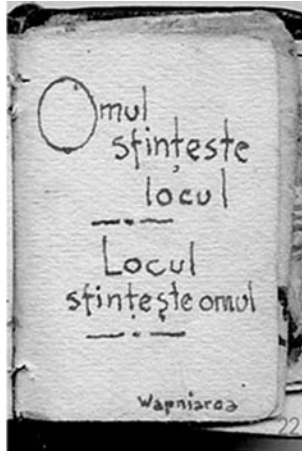 Omul
sfințește
locul
Locul
sfințește omul
Wapniarca
22